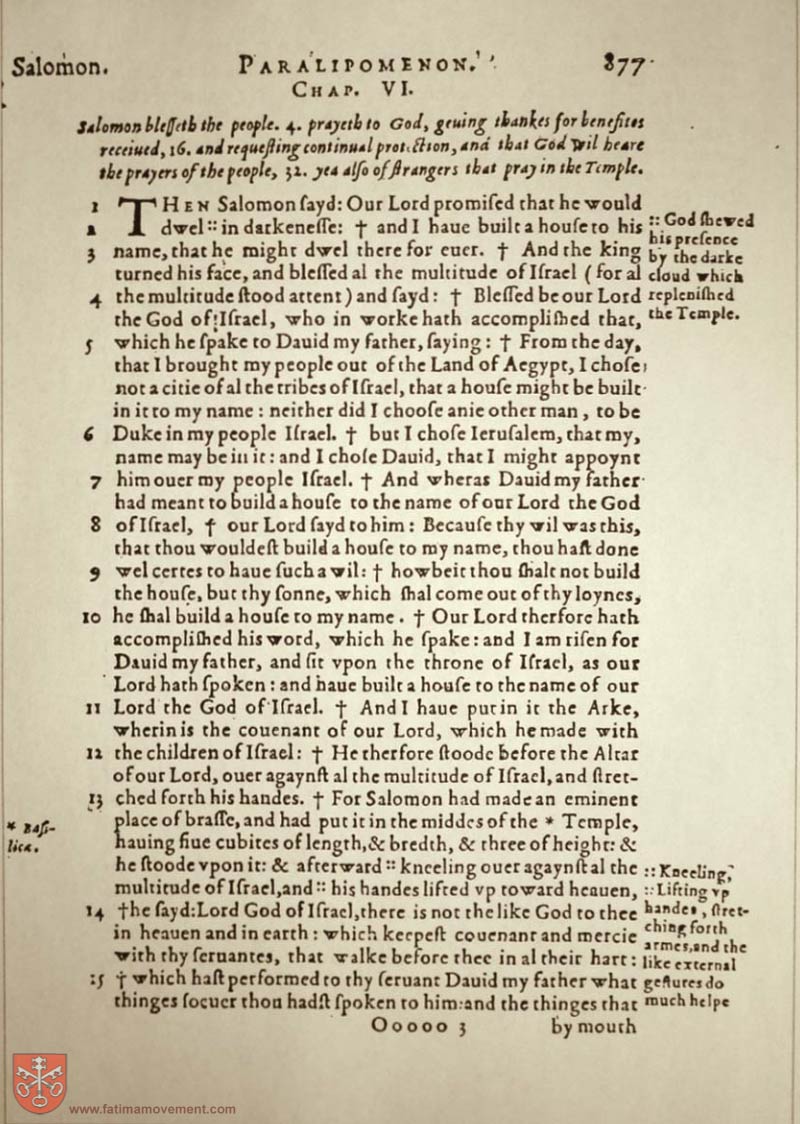 Salomon. PARALIPOMENON. 877
CHAP. VI.
Salomon bleſſeth the people. 4. prayeth to God, geuing thankes for benefites
receiued, 16. and requeſting continual protection, and that God wil heare
the prayers of the people, 32. yea alſo of ſtrangers that pray in the Temple.
1 THEN Salomon ſayd: Our Lord promiſed that he would
2 dwel :: in darkeneſſe: † and I haue built a houſe to his
3 name, that he might dwel there for euer. † And the king
turned his face, and bleſſed al the multitude of Iſrael (for al
4 the multitude ſtood attent) and ſayd: † Bleſſed be our Lord
the God of Iſrael, who in worke hath accompliſhed that,
5 which he ſpake to Dauid my father, ſaying: † From the day,
that I brought my people out of the Land of Aegypt, I choſe
not a citie of al the tribes of Iſrael, that a houſe might be built
in it to my name: neither did I chooſe anie other man, to be
6 Duke in my people Iſrael. † but I choſe Ieruſalem, that my,
name may be in it: and I choſe Dauid, that I might appoynt
7 him ouer my people Iſrael. † And wheras Dauid my father
had meant to build a houſe to the name of our Lord the God
8 of Iſrael, † our Lord ſayd to him: Becauſe thy wil was this,
that thou wouldeſt build a houſe to my name, thou haſt done
9 wel certes to haue ſuch a wil: † howbeit thou ſhalt not build
the houſe, but thy ſonne, which ſhal come out of thy loynes,
10 he ſhal build a houſe to my name. † Our Lord therfore hath
accompliſhed his word, which he ſpake: and I am riſen for
Dauid my father, and ſit vpon the throne of Iſrael, as our
Lord hath ſpoken: and haue built a houſe to the name of our
11 Lord the God of Iſrael. † And I haue put in it the Arke,
wherin is the couenant of our Lord, which he made with
12 the children of Iſrael: † He therfore ſtoode before the Altar
of our Lord, ouer agaynſt al the multitude of Iſrael, and ſtret-
13 ched forth his handes. † For Salomon had made an eminent
place of braſſe, and had put it in the middes of the * Temple,
hauing fiue cubites of length, & bredth, & three of height: &
he ſtoode vpon it: & afterward :: kneeling ouer agaynſt al the
multitude of Iſrael, and :: his handes lifted vp toward heauen,
14 † he ſayd: Lord God of Iſrael, there is not the like God to thee
in heauen and in earth: which keepeſt couenant and mercie
with thy ſeruantes, that walke before thee in al their hart:
:5 † which haſt performed to thy ſeruant Dauid my father what
thinges ſoeuer thou hadſt ſpoken to him: and the thinges that
Ooooo 3 by mouth
:: God ſhewed
his preſence
by the darke
cloud which
repleniſhed
the Temple.
* Baſi-
lica.
:: Kneeling,
:: Lifting vp
handes, ſtret-
ching forth
armes, and the
like external
geſtures do
much helpe
www.fatimamovement.com